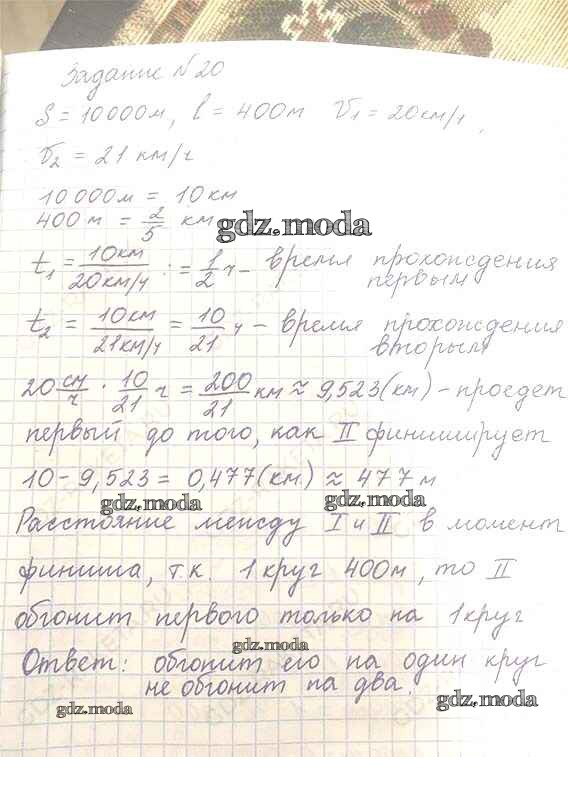 Задание №20
S = 10000м, l = 400м V₁ = 20км/ч,
V₂ = 21 км/ч
10 000 м = 10 км
400 м = 2/5 км
gdz.moda
t₁ = 10км/20км/ч = 1/2 ч - время прохождения
первым
t₂ = 10км/21км/ч = 10/21 ч - время прохождения
вторым
20 км/ч · 10/21 ч = 200/21 км ≈ 9,523(км) - проедет
первый до того, как II финиширует
10 - 9,523 = 0,477(км) ≈ 477 м
gdz.moda gdz.moda
Расстояние между I и II в момент
финиша, т.к. 1 круг 400м, то II
обгонит первого только на 1 круг
gdz.moda
Ответ: обгонит его на один круг
не обгонит на два.
gdz.moda gdz.moda